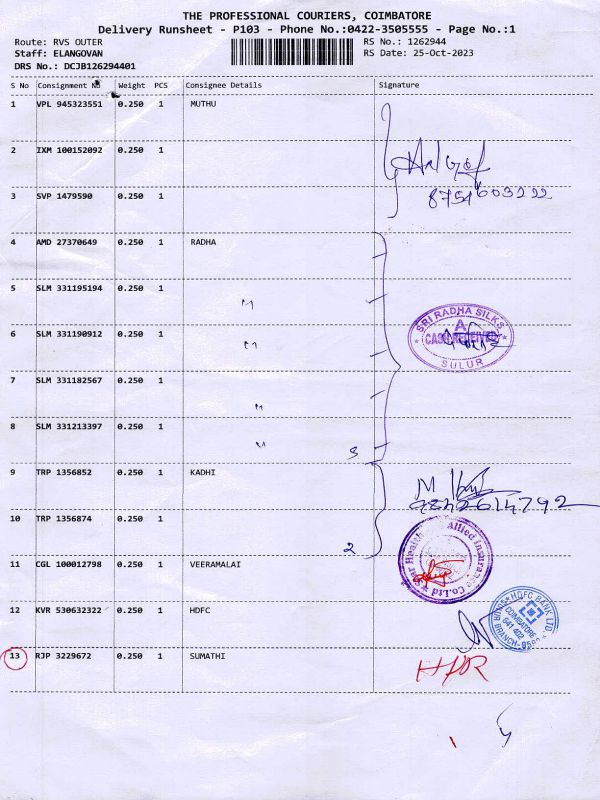 THE PROFESSIONAL COURIERS, COIMBATORE
Delivery Runsheet - P103 - Phone No.:0422-3505555 - Page No.:1
Route: RVS OUTER
RS No.: 1262944
Staff: ELANGOVAN
RS Date: 25-Oct-2023
DRS No.: DCJB126294401
S No Consignment No Weight PCS Consignee Details Signature
1 VPL 945323551 0.250 1 MUTHU
2 IXM 100152092 0.250 1
3 SVP 1479590 0.250 1
4 AMD 27370649 0.250 1 RADHA
5 SLM 331195194 0.250 1 "
SRI RADHA SILKS
6 SLM 331190912 0.250 1 "
SULUR
7 SLM 331182567 0.250 1 "
8 SLM 331213397 0.250 1 "
9 TRP 1356852 0.250 1 KADHI
9842614792
10 TRP 1356874 0.250 1 2
Star Health Allied Insurance Co.Ltd
11 CGL 100012798 0.250 1 VEERAMALAI
12 KVR 530632322 0.250 1 HDFC
HDFC BANK LTD
COIMBATORE
641 402
13 RJP 3229672 0.250 1 SUMATHI